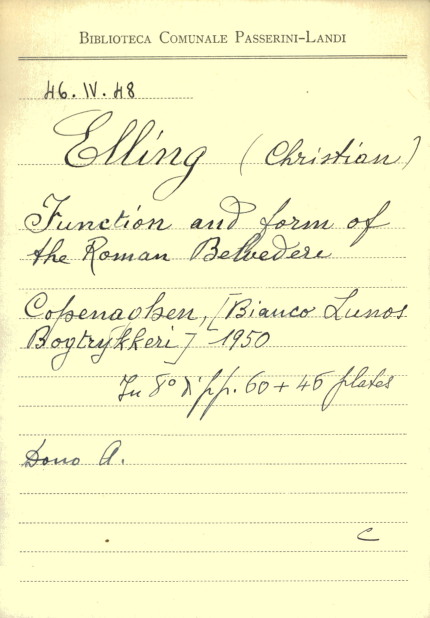 BIBLIOTECA COMUNALE PASSERINI-LANDI
46. IV. 48
Elling (Christian)
Function and form of
the Roman Belvedere
Copenaghen, [Bianco Lunos
Bogtrykkeri] 1950
In 8° di pp. 60 + 46 plates
Dono A.
C